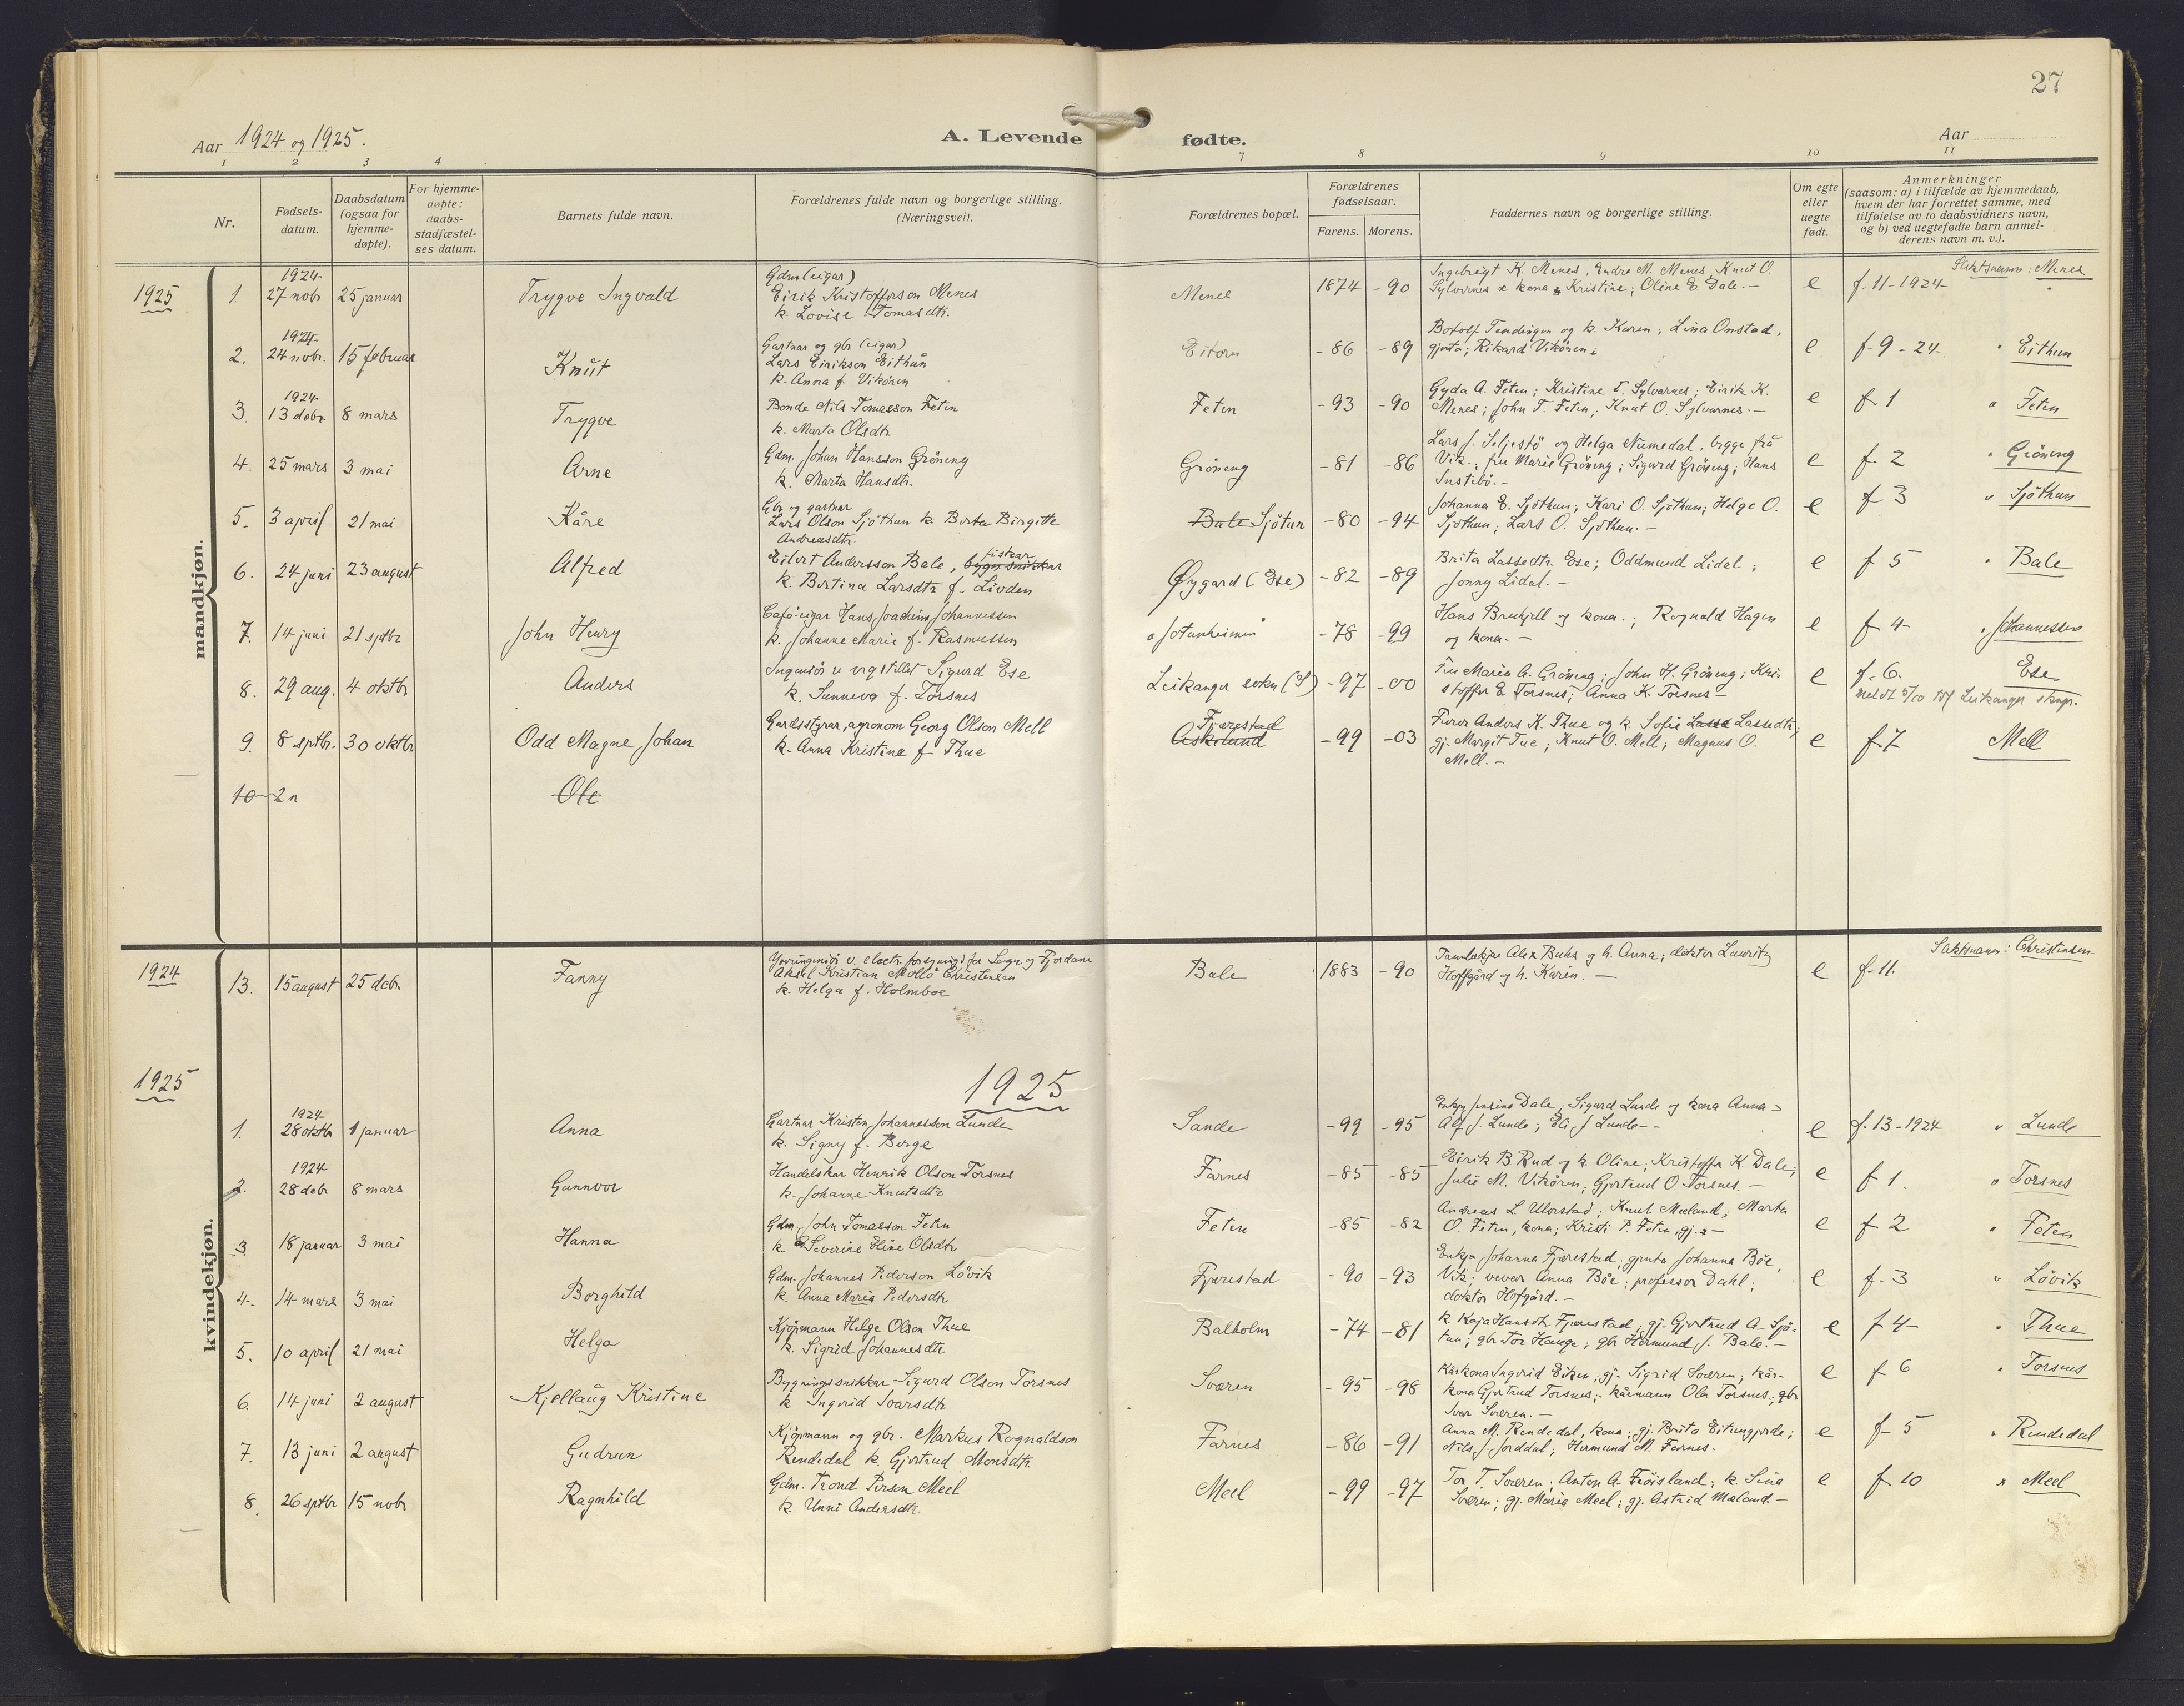 27
Aar 1924 og 1925.
A. Levende fødte.
Aar
1 2 3 4 7 8 9 10 11
Nr.
Fødsels-
datum.
Daabsdatum
(ogsaa for
hjemme-
døpte).
For hjemme-
døpte:
daabs-
stadfæstel-
ses datum.
Barnets fulde navn.
Forældrenes fulde navn og borgerlige stilling.
(Næringsvei).
Forældrenes bopæl.
Forældrenes
fødselsaar.
Farens. Morens.
Faddernes navn og borgerlige stilling.
Om egte
eller
uegte
født.
Anmerkninger
(saasom: a) i tilfælde av hjemmedaab,
hvem der har forrettet samme, med
tilføielse av to daabsvidners navn,
og b) ved uegtefødte barn anmel-
derens navn m. v.).
mandkjøn.
1925
1. 1924 27 nobr 25 januar Trygve Ingvald
Gdm (eigar)
Eirik Kristofferson Menes
k. Lovise Tomasdtr.
Menes 1874 -90
Ingebrigt K. Menes, Endre M. Menes, Knut O.
Sylvernes & kona Kristine; Oline E. Dale.-
e f-11-1924 Slektsnamn: Menes
2. 1924 24 nobr. 15 februar Knut
Gartnar og gbr (eigar)
Lars Eirikson Eithun
k. Anna f. Vikören
Eitorn -86 -89
Botolf Tendingen og k. Karen; Lina Onstad,
gjenta; Rikard Vikören.
e f-9-24- " Eithun
3. 1924 13 debr 8 mars Trygve
Bonde Nils Tomasson Feten
k. Marta Olsdtr
Feten -93 -90
Gyda A. Feten; Kristine T. Sylvarnes; Eirik K.
Menes; John T. Feten; Knut O. Sylvarnes.-
e f-1 " Feten
4. 25 mars 3 mai Arne
Gdm. Johan Hansson Gröneng
k. Marta Hansdtr.
Gröneng -81 -86
Lars J. Seljestö og Helga Numedal, begge frå
Vik; fru Marie Gröneng; Sigurd Gröneng; Hans
Instebö.-
e f-2 " Gröneng
5. 3 april 21 mai Kåre
Gbr og gartnar
Lars Olson Sjöthun k. Berta Birgitte
Andreasdtr.
Bale Sjötun -80 -94
Johanna E. Sjöthun; Kari O. Sjöthun; Helge O.
Sjöthun; Lars O. Sjöthun.-
e f 3 " Sjöthun
6. 24 juni 23 august Alfred
Eilert Andersson Bale, bygn snikkar fiskar
k. Bertina Larsdtr f. Livden
Øygard (Ese) -82 -89
Brita Lassedtr. Ese; Oddmund Lidal;
Jonny Lidal.-
e f 5 " Bale
7. 14 juni 21 sptbr John Henry
Caféeigar Hans Joachim Johannessen
k. Johanne Marie f. Rasmussen
"Jotunheimen" -78 -99
Hans Brekjell og kona.; Rognald Hagen
og kona.-
e f 4- " Johannessen
8. 29 aug. 4 oktbr Anders
Ingeniör v vegstellet Sigurd Ese
k. Sunneva f. Torsnes
Leikanger sokn (S) -97 -00
Fru Maria A. Gröneng; John H. Gröneng; Kri-
stoffer E. Torsnes; Anna K. Torsnes-
e f-6. Ese
9. 8 sptbr. 30 oktbr Odd Magne Johan
Gardsstyrar, agronom Georg Olson Mell
k. Anna Kristine f Thue
Fjærestad
Askelund -99 -03
Furer Anders K. Thue og k. Sofie Lasse Lassedtr;
gj. Margit Tue; Knut O. Mell; Magnus O.
Mell.-
e f-7 Mell
10 2 n Ole
kvindekjøn.
1924
13. 15 august 25 debr Fanny
Yveringeniör v. electr. forsyningi for Sogn og Fjordane
Aksel Kristian Mollö Christensen
k. Helga f. Holmboe
Bale 1883 -90
Tannlækjar Alex Buhs og h. Anna; doktor Lauritz
Hoffgård og h. Karen.-
e f-11. Slektsnamn: Christensen
1925
1925
1. 1924 28 oktbr 1 januar Anna
Gartnar Kristen Johannesson Lunde
k. Signy f. Berge
Sande -99 -95
Enkja Jensine Dale; Sigurd Lunde og kona Anna-
Alf J. Lunde; Eli J Lunde--
e f-13-1924 " Lunde
2. 1924 28 debr 8 mars Gunnvor
Handelskar Henrik Olson Torsnes
k. Johanne Knutsdtr
Farnes -85 -85
Eirik B. Rud og k. Oline; Kristoffer K. Dale;
Julie M. Vikören; Gjertrud O. Torsnes.-
e f 1. " Torsnes
3. 18 januar 3 mai Hanna
Gdm. John Tomasson Feten
k Severine Eline Olsdtr
Feten -85 -82
Andreas L Ulvestad; Knut Meeland; Marta
O. Feten, kona; Kristi P. Feten, gj.-
e f 2 " Feten
4. 14 mars 3 mai Borghild
Gdm. Johannes Pederson Lövik
k. Anna Maria Pedersdtr
Fjærestad -90 -93
Enkja Johanna Fjærestad; gjenta Johanna Böe,
Vik; vever Anna Böe; professor Dahl;
doktor Hofgård.-
e f-3 " Lövik
5. 10 april 21 mai Helga
Kjöpmann Helge Olson Thue
k. Sigrid Johannesdtr
Balholm -74 -81
k Kaja Hansdtr Fjærestad; gj. Gjertrud A. Sjö-
tun; gbr Tor Hauge; gbr Hermund J. Bale.-
e f 4- " Thue
6. 14 juni 2 august Kjellaug Kristine
Bygningssnikkar Sigurd Olson Torsnes
k Ingerid Ivarsdtr
Sværen -95 -98
Kårkona Ingerid Eiken; gj. Sigrid Sværen; kår-
kona Gjertrud Torsnes; kårmann Ola Torsnes; gbr
Ivar Sværen.-
e f 6 " Torsnes
7. 13 juni 2 august Gudrun
Kjöpmann og gbr. Markus Rognaldson
Rendedal k. Gjertrud Monsdtr.
Farnes -86 -91
Anna M. Rendedal, kona; gj. Brita Eitungjerde;
Nils J. Jorddal; Hermund M. Farnes.
e f-5 " Rendedal
8. 26 sptbr 15 nobr Ragnhild
Gdm. Trond Person Meel
k. Unni Andersdtr.
Meel -99 -97
Tor T. Sværen; Anton A. Fröisland; k. Sina
Sværen; gj. Maria Meel; gj. Astrid Mæland.-
e f-10 " Meel